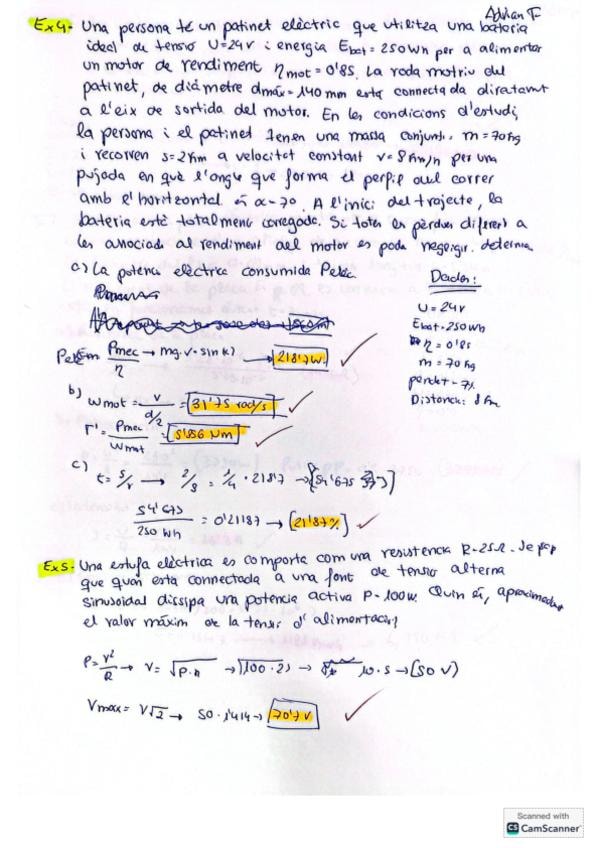 Adrian F.
Ex4.- Una persona té un patinet elèctric que utilitza una bateria
ideal de tensió U=24v i energia Ebat=250wh per a alimentar
un motor de rendiment ηmot=0'85. La roda motriu del
patinet, de diámetre dmax=140mm està connectada diratamt
a l'eix de sortida del motor. En les condicions d'estudi,
la persona i el patinet tenen una massa conjunt. m=70kg
i recorren s=2km a velocitat constant v=8km/h per una
pujada en què l'angle que forma el perfil del carrer
amb l'horitzontal és α=7º. A l'inici del trajecte, la
bateria està totalment carregada. Si totes les pèrdues diferents a
les associada al rendiment del motor es poden negligir. determina
a) La potencia elèctrica consumida Pelèc
Dades:
U=24v
Ebat=250wh
η=0'85
m=70kg
pendet=7%
Distancia: 8km
Pmec/η → mg·v·sin(α) → 218'7w.
b) ωmot = v/d/2 = 31'75 rad/s
Γ = Pmec/ωmot = 5'856 Nm
c) t=s/v → 2/8 = 1/4 · 218'7 → 54'675
54'675/250 Wh = 0'2187 → (21'87%)
Ex5- Una estufa elèctrica es comporta com una resistencia R=25Ω. Se
que quan esta connectada a una font de tensio alterna
sinusoidal dissipa una potencia activa P=100w. Quin és, aproximadament
el valor màxim de la tensió d'alimentació
P=V²/R → V=√P·R → √100·25 → 10·5 → (50 V)
Vmax = V√2 → 50·1'414 → 70'7 v
Scanned with
CS CamScanner